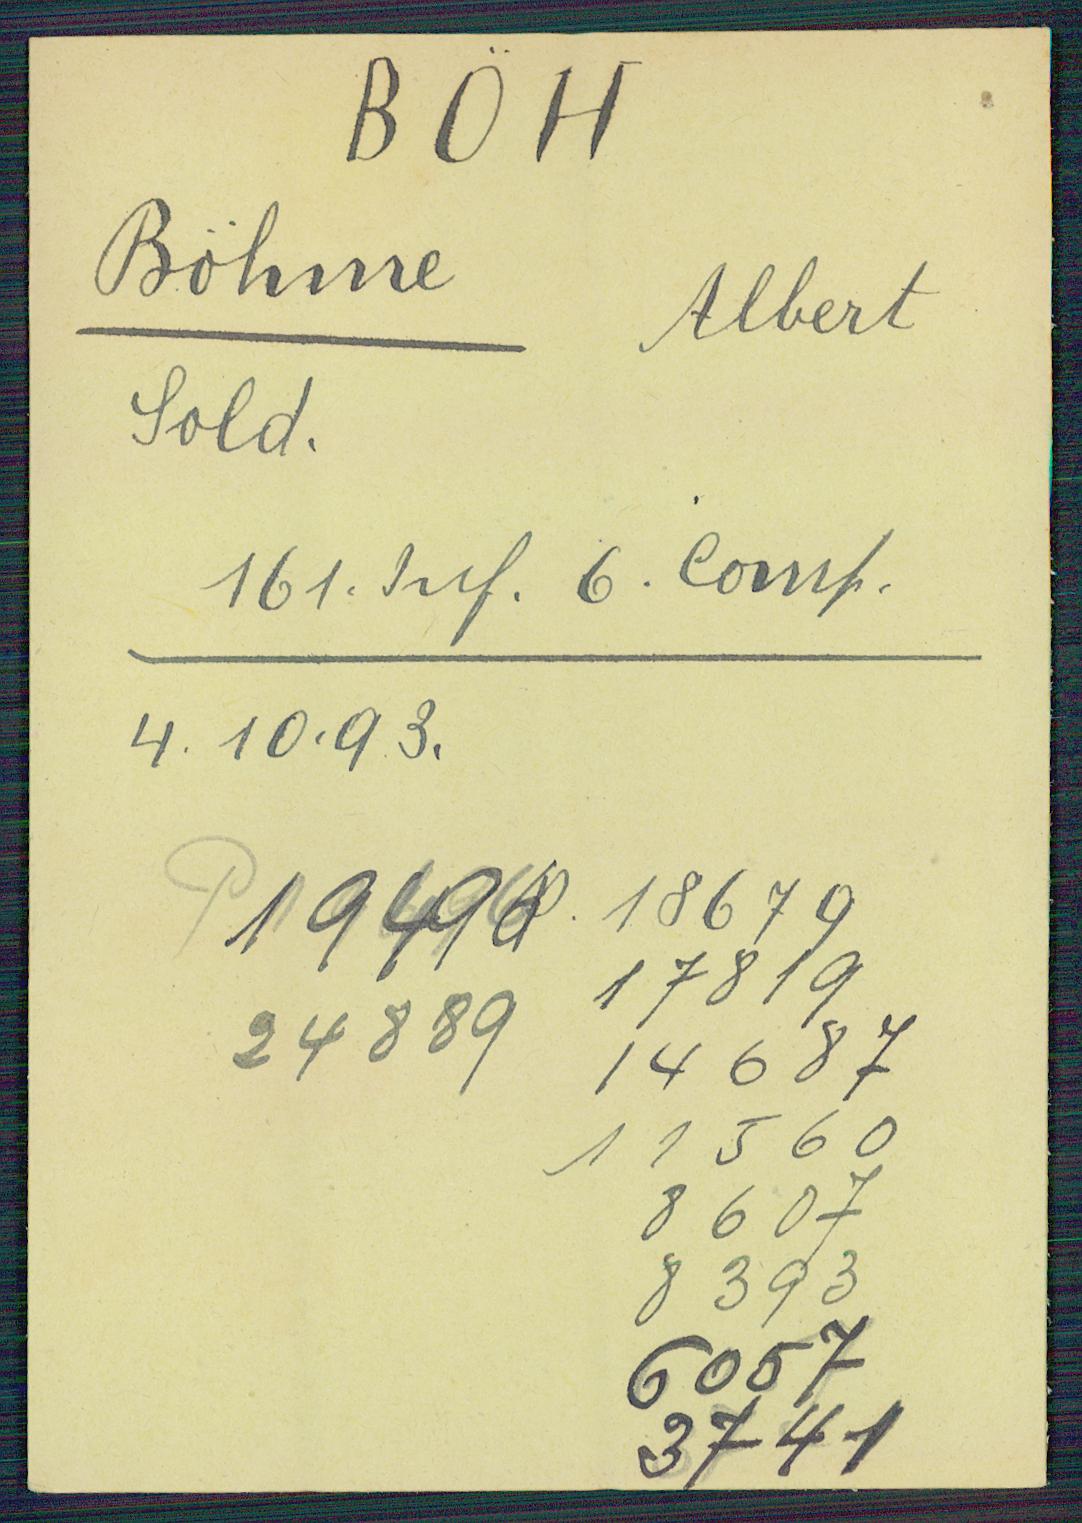 BÖH
Böhme Albert
Sold.
161. Inf. 6. Comp.
4. 10. 93.
P. 18679
24889
17819
14687
11560
8607
8393
6057
3741